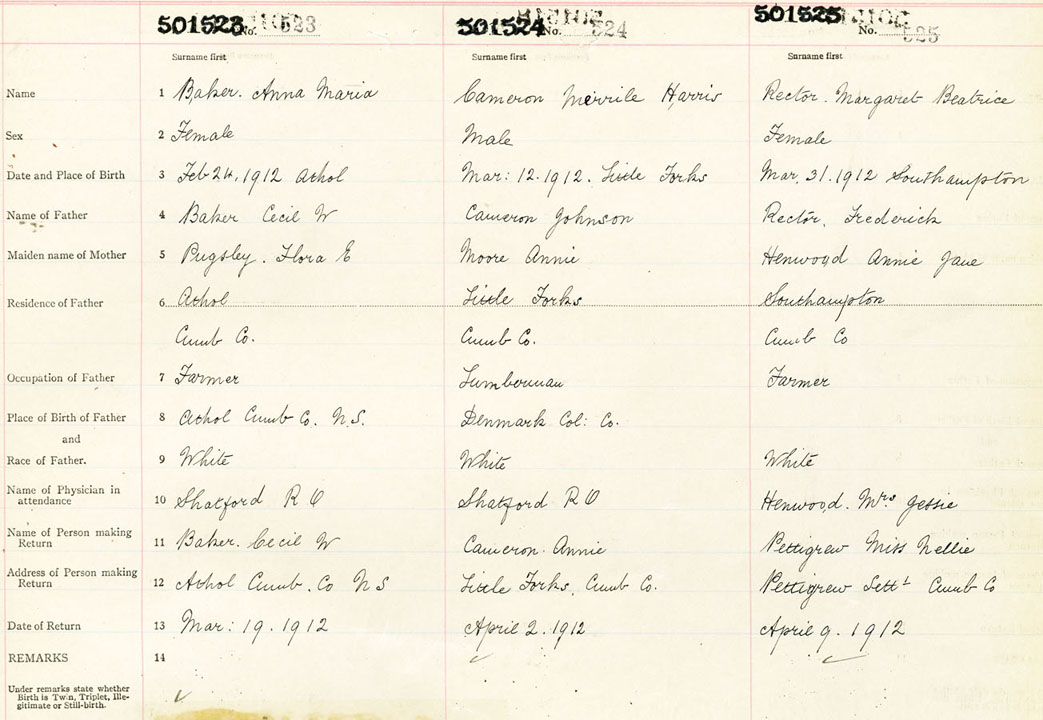 501523 No. 523 501524 No. 524 501525 No. 525
Surname first Surname first Surname first
Name 1 Baker. Anna Maria Cameron Merrile Harris Rector. Margaret Beatrice
Sex 2 Female Male Female
Date and Place of Birth 3 Feb 24, 1912 Athol Mar: 12. 1912. Little Forks Mar. 31. 1912 Southampton
Name of Father 4 Baker Cecil W Cameron Johnson Rector. Frederick
Maiden name of Mother 5 Pugsley. Flora E Moore Annie Henwood Annie Jane
Residence of Father 6 Athol Little Forks Southampton
Cumb Co. Cumb Co. Cumb Co
Occupation of Father 7 Farmer Lumberman Farmer
Place of Birth of Father 8 Athol Cumb Co. N.S. Denmark Col: Co.
and
Race of Father. 9 White White White
Name of Physician in
attendance 10 Shatford R O Shatford R O Henwood. Mrs Jessie
Name of Person making
Return 11 Baker. Cecil W Cameron. Annie Pettigrew Miss Nellie
Address of Person making
Return 12 Athol Cumb. Co N S Little Forks, Cumb Co. Pettigrew Settt Cumb Co
Date of Return 13 Mar: 19. 1912 April 2. 1912 April 9. 1912
REMARKS 14
Under remarks state whether
Birth is Twin, Triplet, Ille-
gitimate or Still-birth.